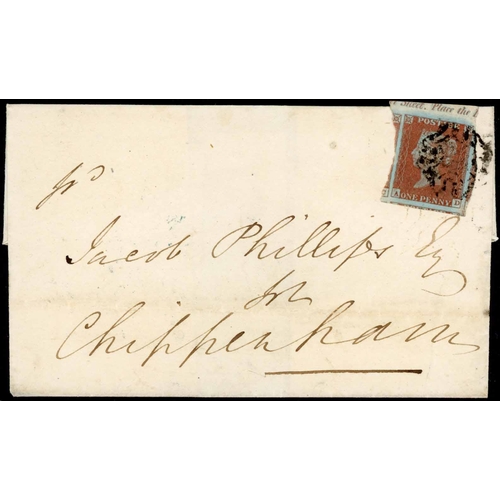 Sheet. Place the
POSTAGE
A ONE PENNY D
Jacob Phillips Esq
Chippenham